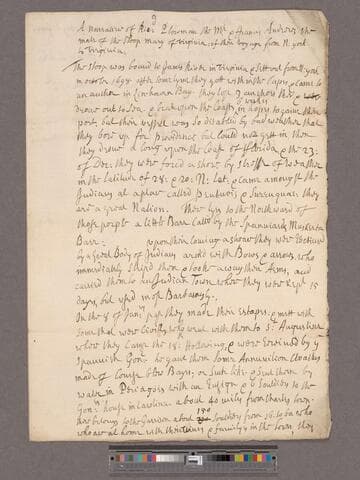 A Narrative of Rich^d Plowman the M^r & francis Andrews the
mate of the Sloop mary of virginia, of their voyage from N: york
to virginia.
The sloop was bound to James River in virginia & sett out from N: york
in october 1698 after some time they gott within the Capes & came to
an anchor in Linhaven Bay they lost 2 anchors there &
drove out to sea, & beat upon the Coast 3 weeks in hopes to gaine their
port, but their vessel was so disabled by bad weather that
they bore up for providence but Could not gett in there
they drove a long upon the Coast of Florida & the 23:
of Dec: they were forced a shore by stress of weather
in the latitude of 28: & 20: N: Lat: & came amongst the
Indians at a place called &
are a great Nation. There lyes to the Northward of
those people a little Barr Called by the Spanuiards
Barr: upon their Coming a shoar they were Received
by a great Body of Indians armed with Bowes & arrows, who
immediately stript them & took away their Arms, and
carried them to an Indian Town where they were kept 15
days, but used most Barbarously.
In the 8 of Jan^y past they made their Escape: & mett with
some that were Civill, who went with them to S^t: Augustine
where they Came the 18: following & were received by y^e
Spannish Gov^r he gave them some Ammunition Cloaths
made of Course blew Bayes, or such like & sent them by
water in Periagoes with an Ensign & 4 souldiers to the
Gov^rs house in Carolina about 40 miles from Charles town
there belongs to the Garrison about 150 souldiers from 16: to 60 who
who are at home with their wives & familys in the town, they